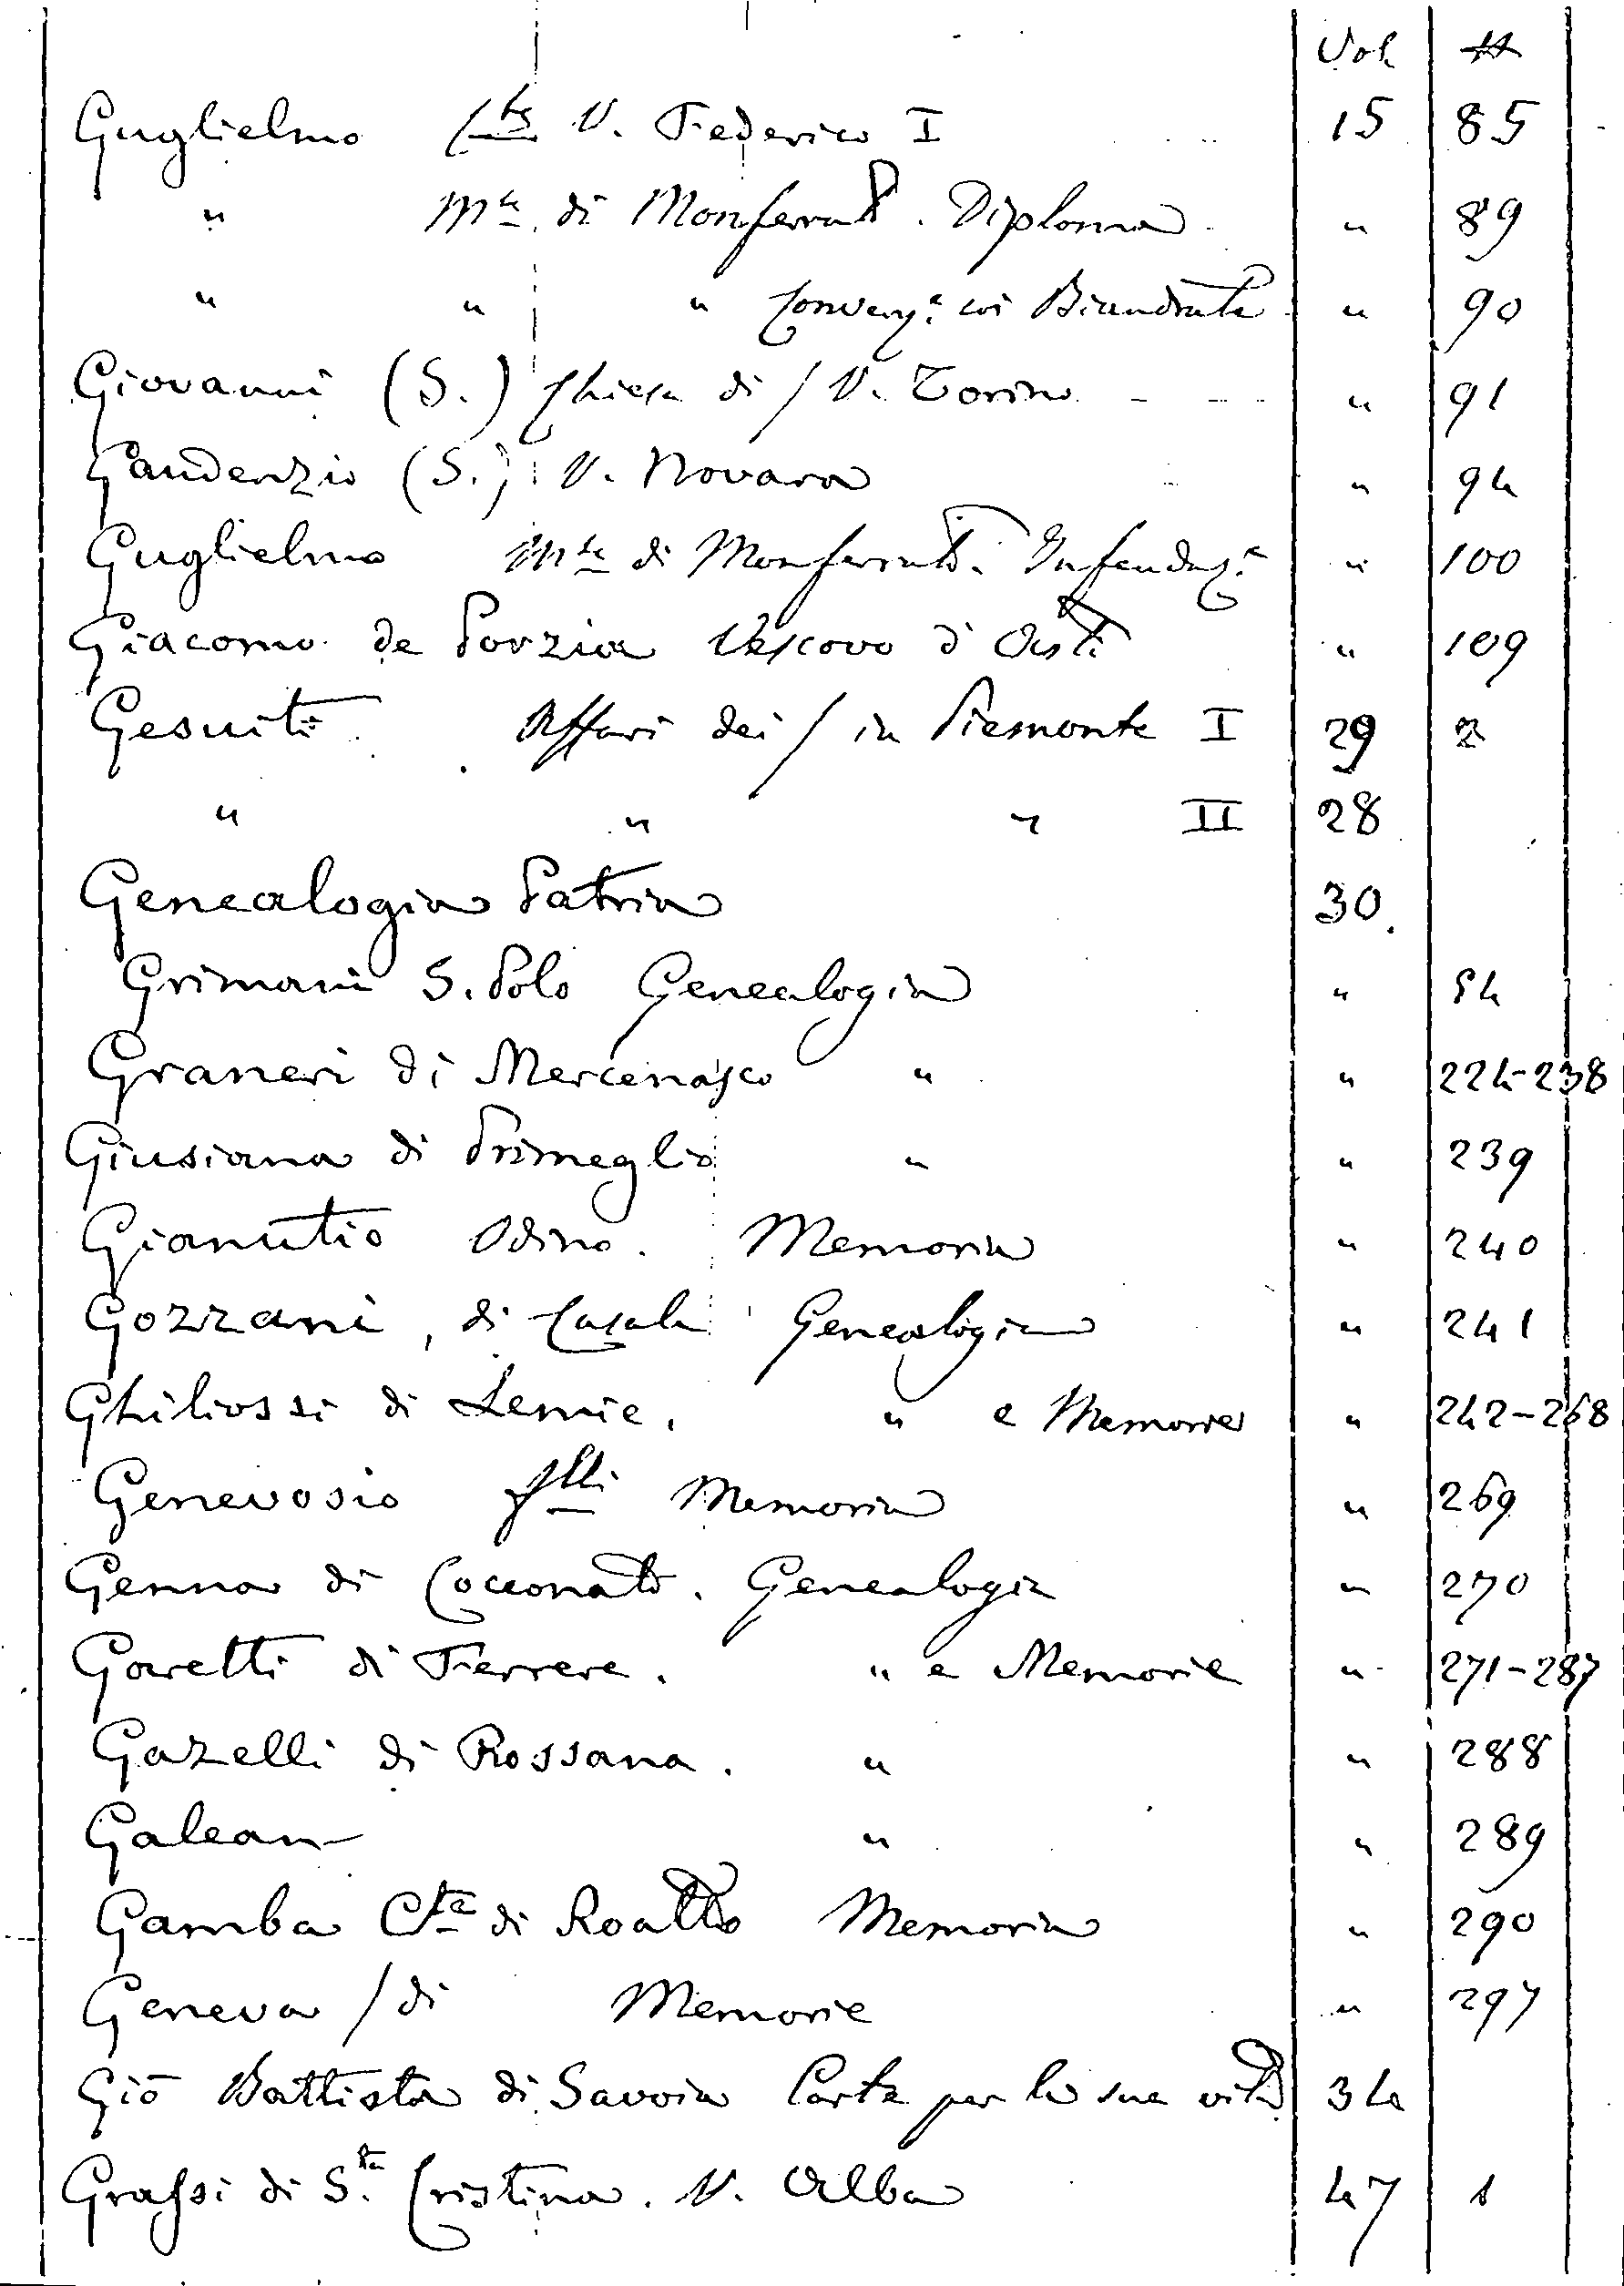 Vol #
Guglielmo Cte V. Federico I 15 85
" Mse di Monferrato. Diploma " 89
" " " Convenz.e coi Biandrate " 90
Giovanni (S.) Chiesa di / V. Torino " 91
Gaudenzio (S.) V. Novara " 94
Guglielmo Mse di Monferrato. Infeudaz.e " 100
Giacomo de Porzia Vescovo d'Asti " 109
Gesuiti. Affari dei / in Piemonte I 29 2
" " " II 28
Genealogia Patria 30.
Grimani S. Polo Genealogia " 54
Graneri di Mercenasco " " 224-238
Giusiana di Primeglio " " 239
Gianutio Odino. Memoria " 240
Gozzani, di Casale Genealogia " 241
Ghiliossi di Lemie. " e Memorie " 242-268
Genevosio flli Memoria " 269
Genna di Cocconato. Genealogia " 270
Garetti di Ferrere. " e Memorie " 271-287
Gazelli di Rossana. " " 288
Galean " " 289
Gamba Cte di Roatto Memoria " 290
Geneva / di Memorie " 297
Gio Battista di Savoia Carte per la sua vita 34
Grassi di S.ta Cristina. V. Alba 47 1